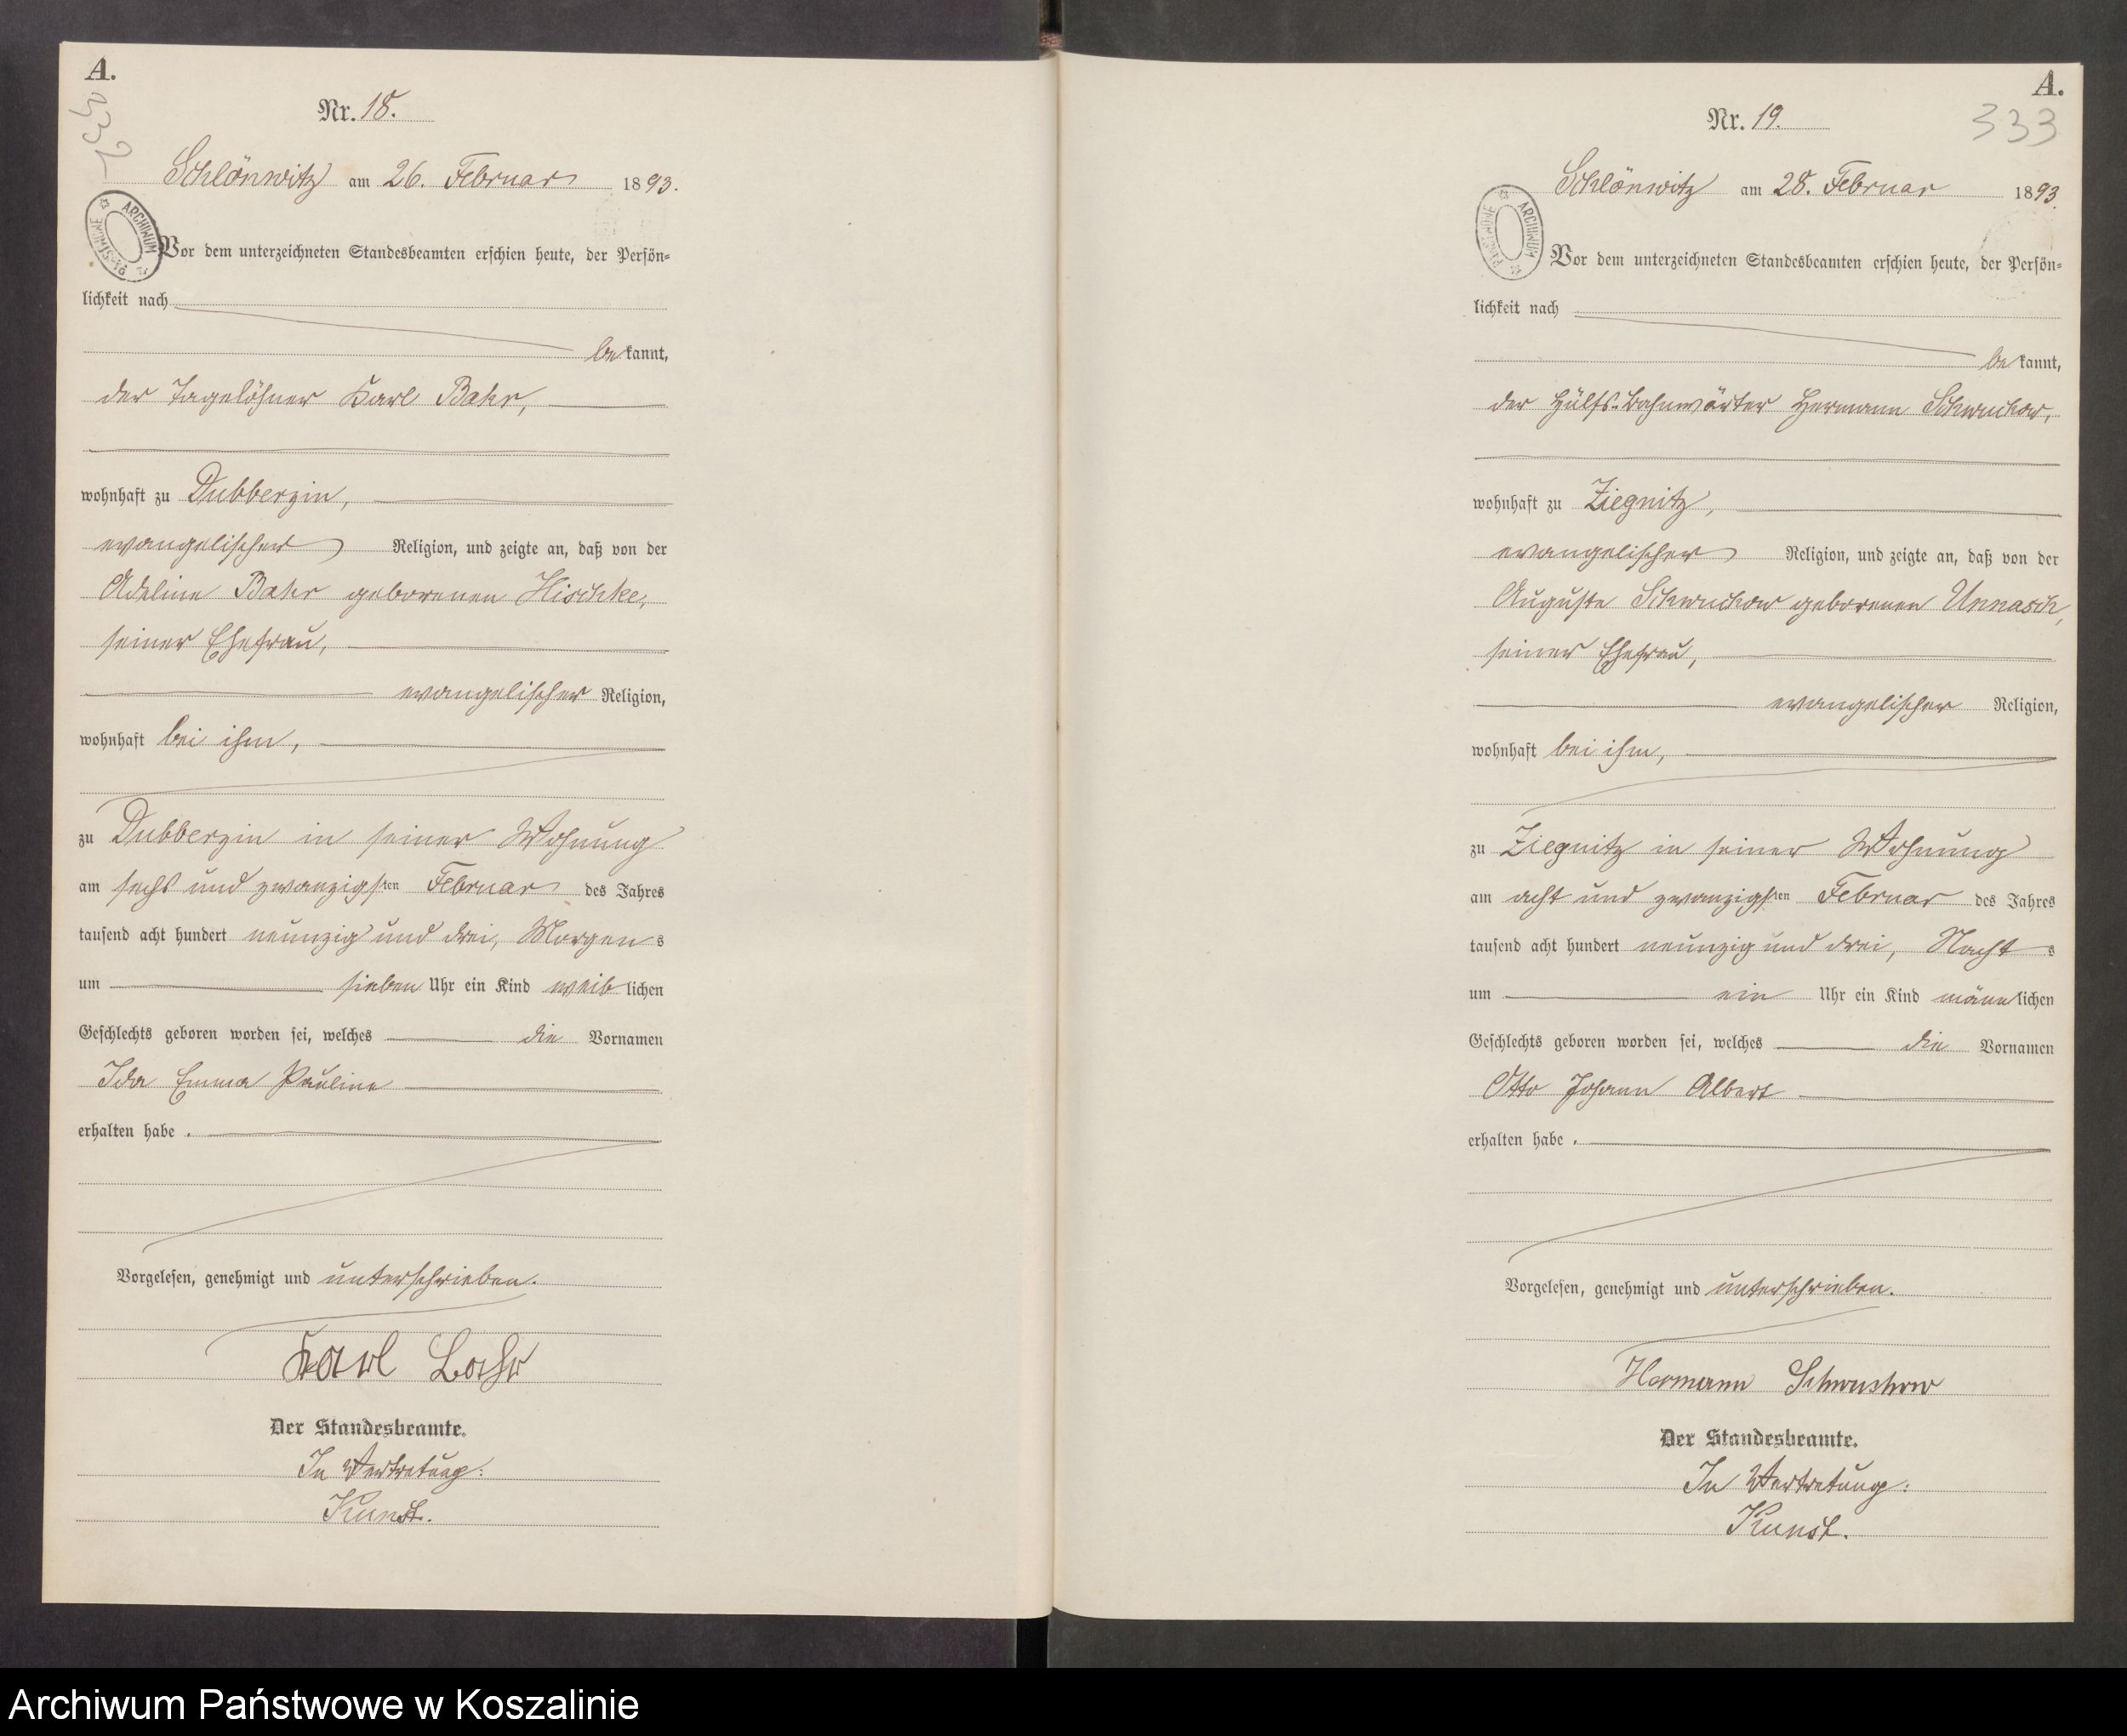 A.
Nr. 18.
Schlönwitz am 26. Februar 1893.
ARCHIWUM PAŃSTWOWE
Vor dem unterzeichneten Standesbeamten erschien heute, der Persön-
lichkeit nach
bekannt,
der Tagelöhner Karl Bahr,
wohnhaft zu Dubberzin,
evangelischer Religion, und zeigte an, daß von der
Adeline Bahr geborenen Hischke,
seiner Ehefrau,
evangelischer Religion,
wohnhaft bei ihm,
zu Dubberzin in seiner Wohnung
am sechs und zwanzigsten Februar des Jahres
tausend acht hundert neunzig und drei, Morgens
um sieben Uhr ein Kind weiblichen
Geschlechts geboren worden sei, welches die Vornamen
Ida Emma Pauline
erhalten habe.
Vorgelesen, genehmigt und unterschrieben.
Karl Bahr
Der Standesbeamte.
In Vertretung:
Kunst.
A.
333
Nr. 19.
Schlönwitz am 28. Februar 1893.
ARCHIWUM PAŃSTWOWE
Vor dem unterzeichneten Standesbeamten erschien heute, der Persön-
lichkeit nach
bekannt,
der Hülfs-Bahnwärter Hermann Schwuchow,
wohnhaft zu Ziegnitz,
evangelischer Religion, und zeigte an, daß von der
Auguste Schwuchow geborenen Unnasch,
seiner Ehefrau,
evangelischer Religion,
wohnhaft bei ihm,
zu Ziegnitz in seiner Wohnung
am acht und zwanzigsten Februar des Jahres
tausend acht hundert neunzig und drei, Nachts
um ein Uhr ein Kind männlichen
Geschlechts geboren worden sei, welches die Vornamen
Otto Johann Albert
erhalten habe.
Vorgelesen, genehmigt und unterschrieben.
Hermann Schwuchow
Der Standesbeamte.
In Vertretung:
Kunst.
Archiwum Państwowe w Koszalinie